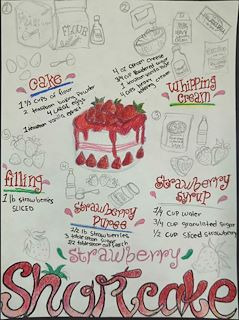 1
2
FLOUR
Cake
1 1/2 cups of flour
2 teaspoon baking powder
4 large eggs
1 teaspoon vanilla extract
4 oz cream cheese
3/4 cup powdered sugar
1 teaspoon vanilla
Whipping
Cream
filling
1 lb strawberries
SLICED
Strawberry
Puree
1/2 lb strawberries
3 tablespoon sugar
Strawberry
Syrup
1/4 cup water
3/4 cup granulated sugar
1/2 cup sliced strawberry
Strawberry
Shortcake